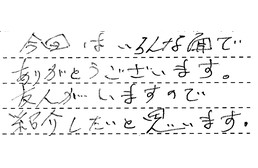 今回はいろんな面で
ありがとうございます。
友人がいますので
紹介したいと思います。